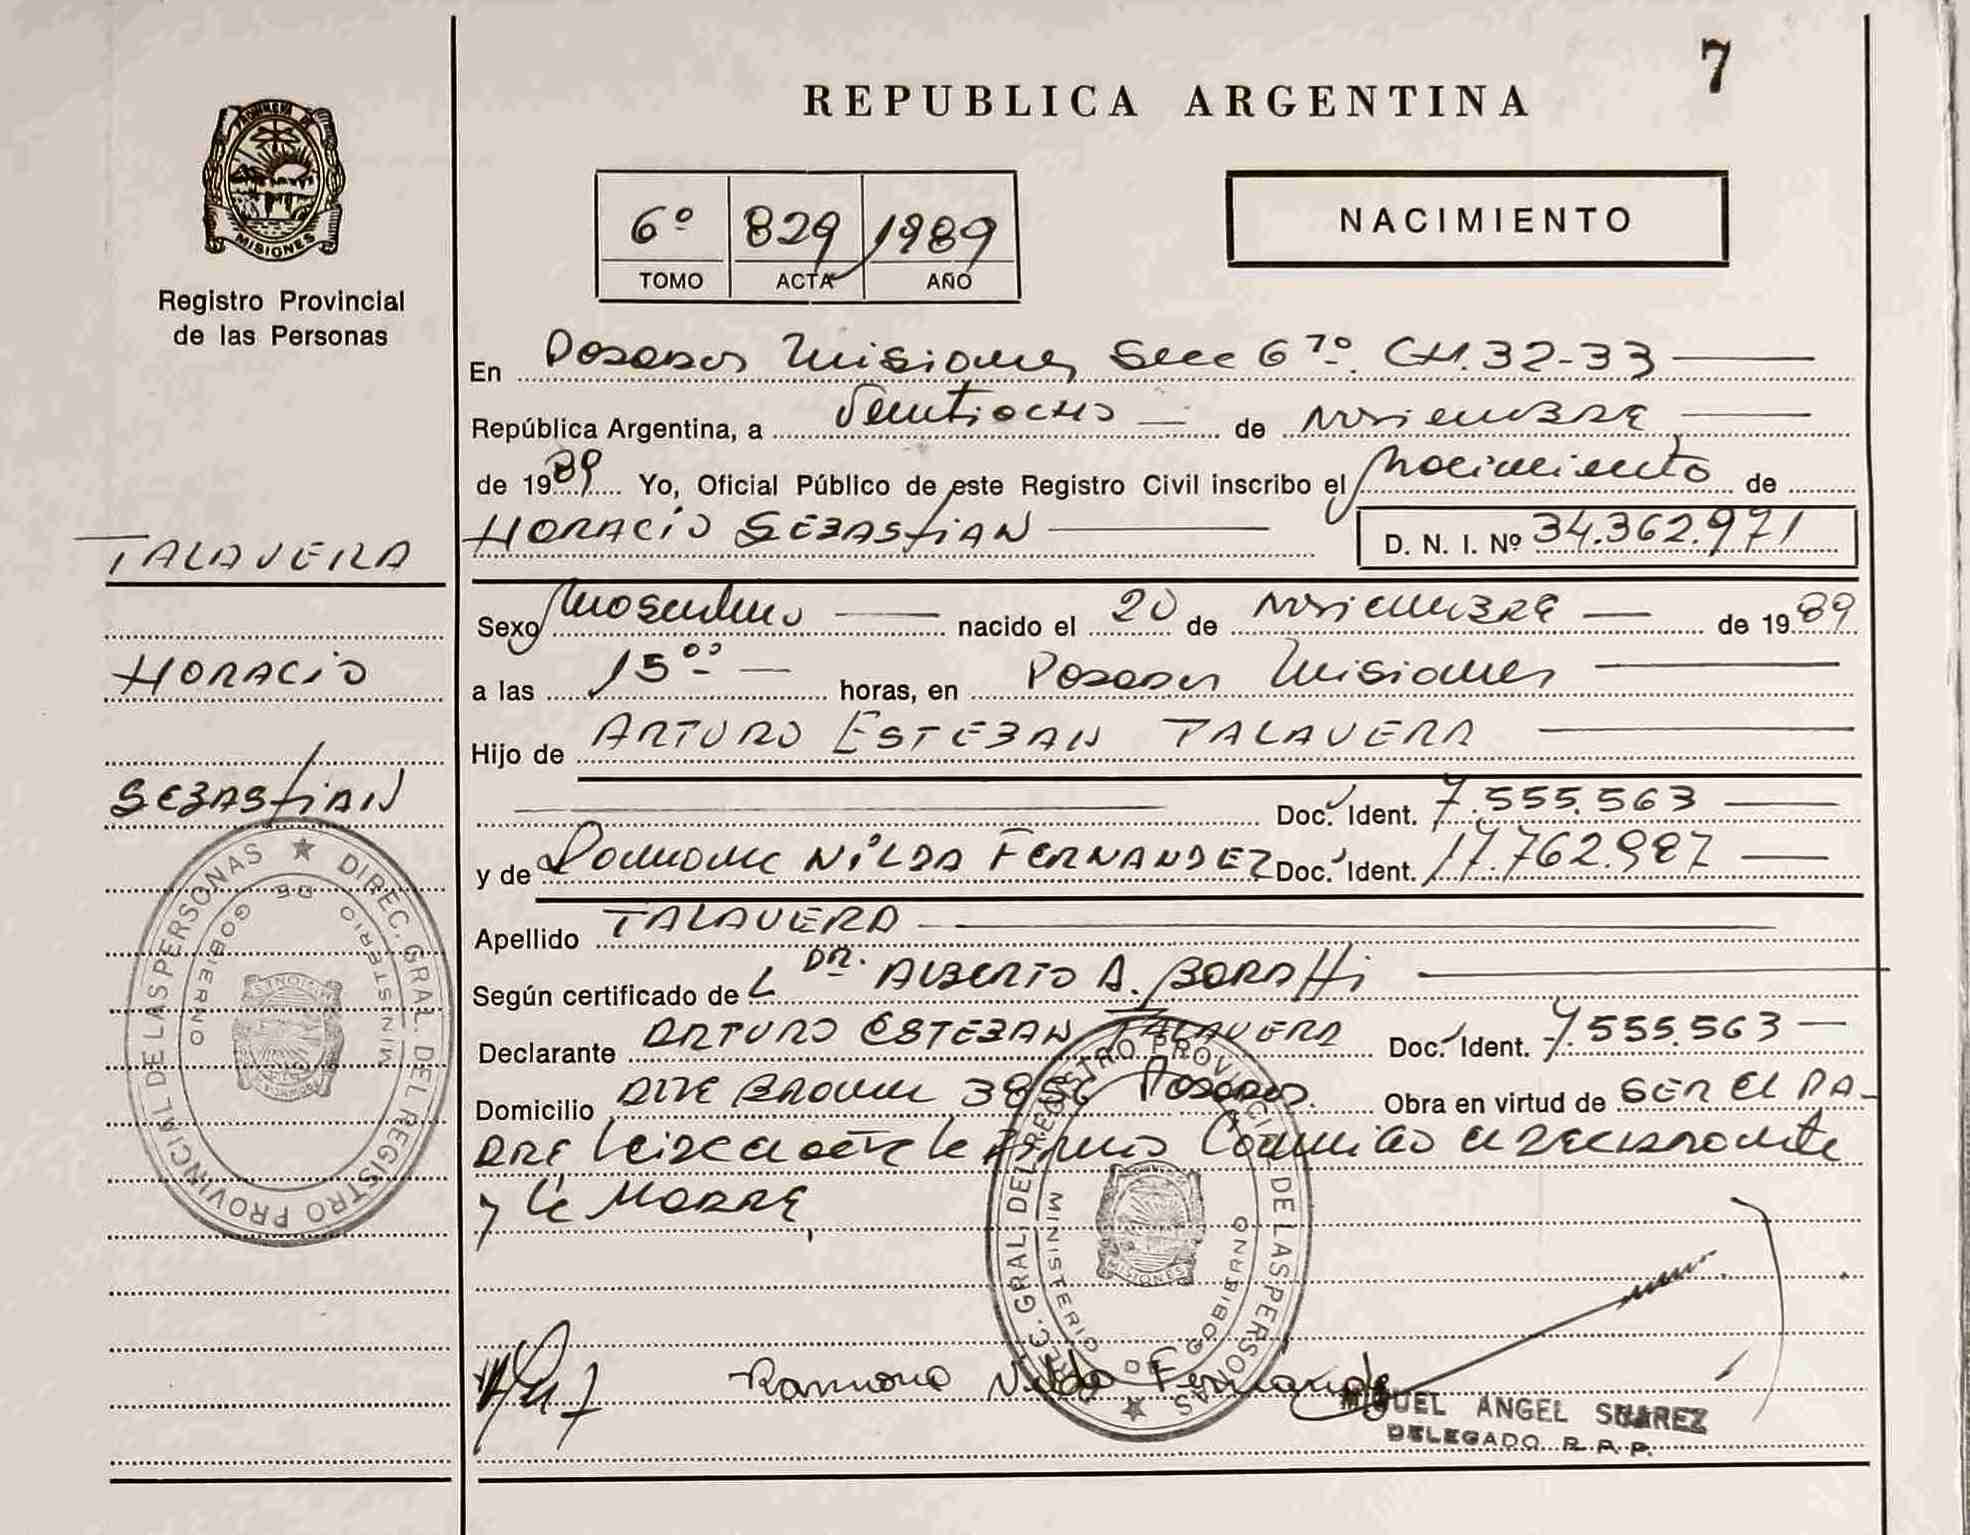 7
REPUBLICA ARGENTINA
MISIONES
Registro Provincial
de las Personas
6º 829 1989
TOMO ACTA AÑO
NACIMIENTO
En Posadas Misiones Secc 6 CH. 32-33
República Argentina, a Veintiocho de Noviembre
de 1989 Yo, Oficial Público de este Registro Civil inscribo el Nacimiento de
HORACIO SEBASTIAN D. N. I. Nº 34.362.971
TALAVERA
HORACIO
SEBASTIAN
Sexo Masculino nacido el 20 de Noviembre de 1989
a las 15 horas, en Posadas Misiones
Hijo de ARTURO ESTEBAN TALAVERA
Doc. Ident. 7.555.563
y de Ramona NILDA FERNANDEZ Doc. Ident. 17.762.987
Apellido TALAVERA
Según certificado de L DR. ALBERTO A.
Declarante ARTURO ESTEBAN TALAVERA Doc. Ident. 7.555.563
Domicilio Brown Posadas. Obra en virtud de SER EL PA-
DRE Leida el acta la firman el declarante
y la MADRE
DIREC. GRAL. DEL REGISTRO PROVINCIAL DE LAS PERSONAS
MINISTERIO DE GOBIERNO
MISIONES
DIREC. GRAL. DEL REGISTRO PROVINCIAL DE LAS PERSONAS
MINISTERIO DE GOBIERNO
MISIONES
Ramona Nilda Fernandez
MIGUEL ANGEL SUAREZ
DELEGADO R. P. P.